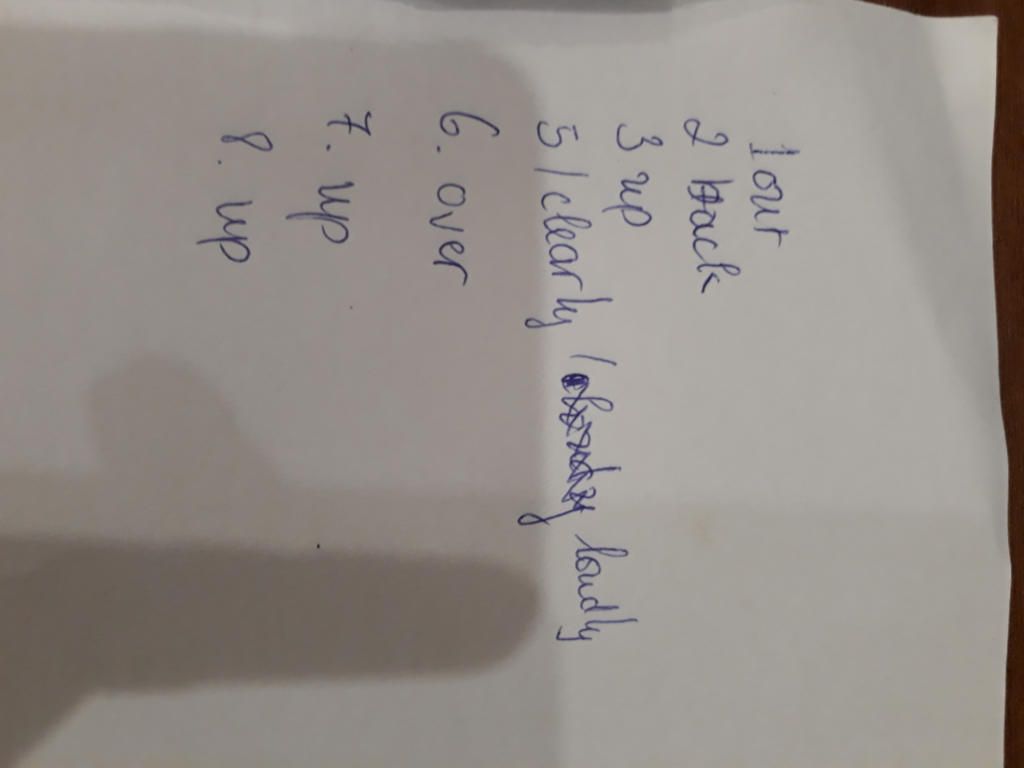 1 out
2 back
3 up
5 / clearly / loudly
6. over
7. up
8. up